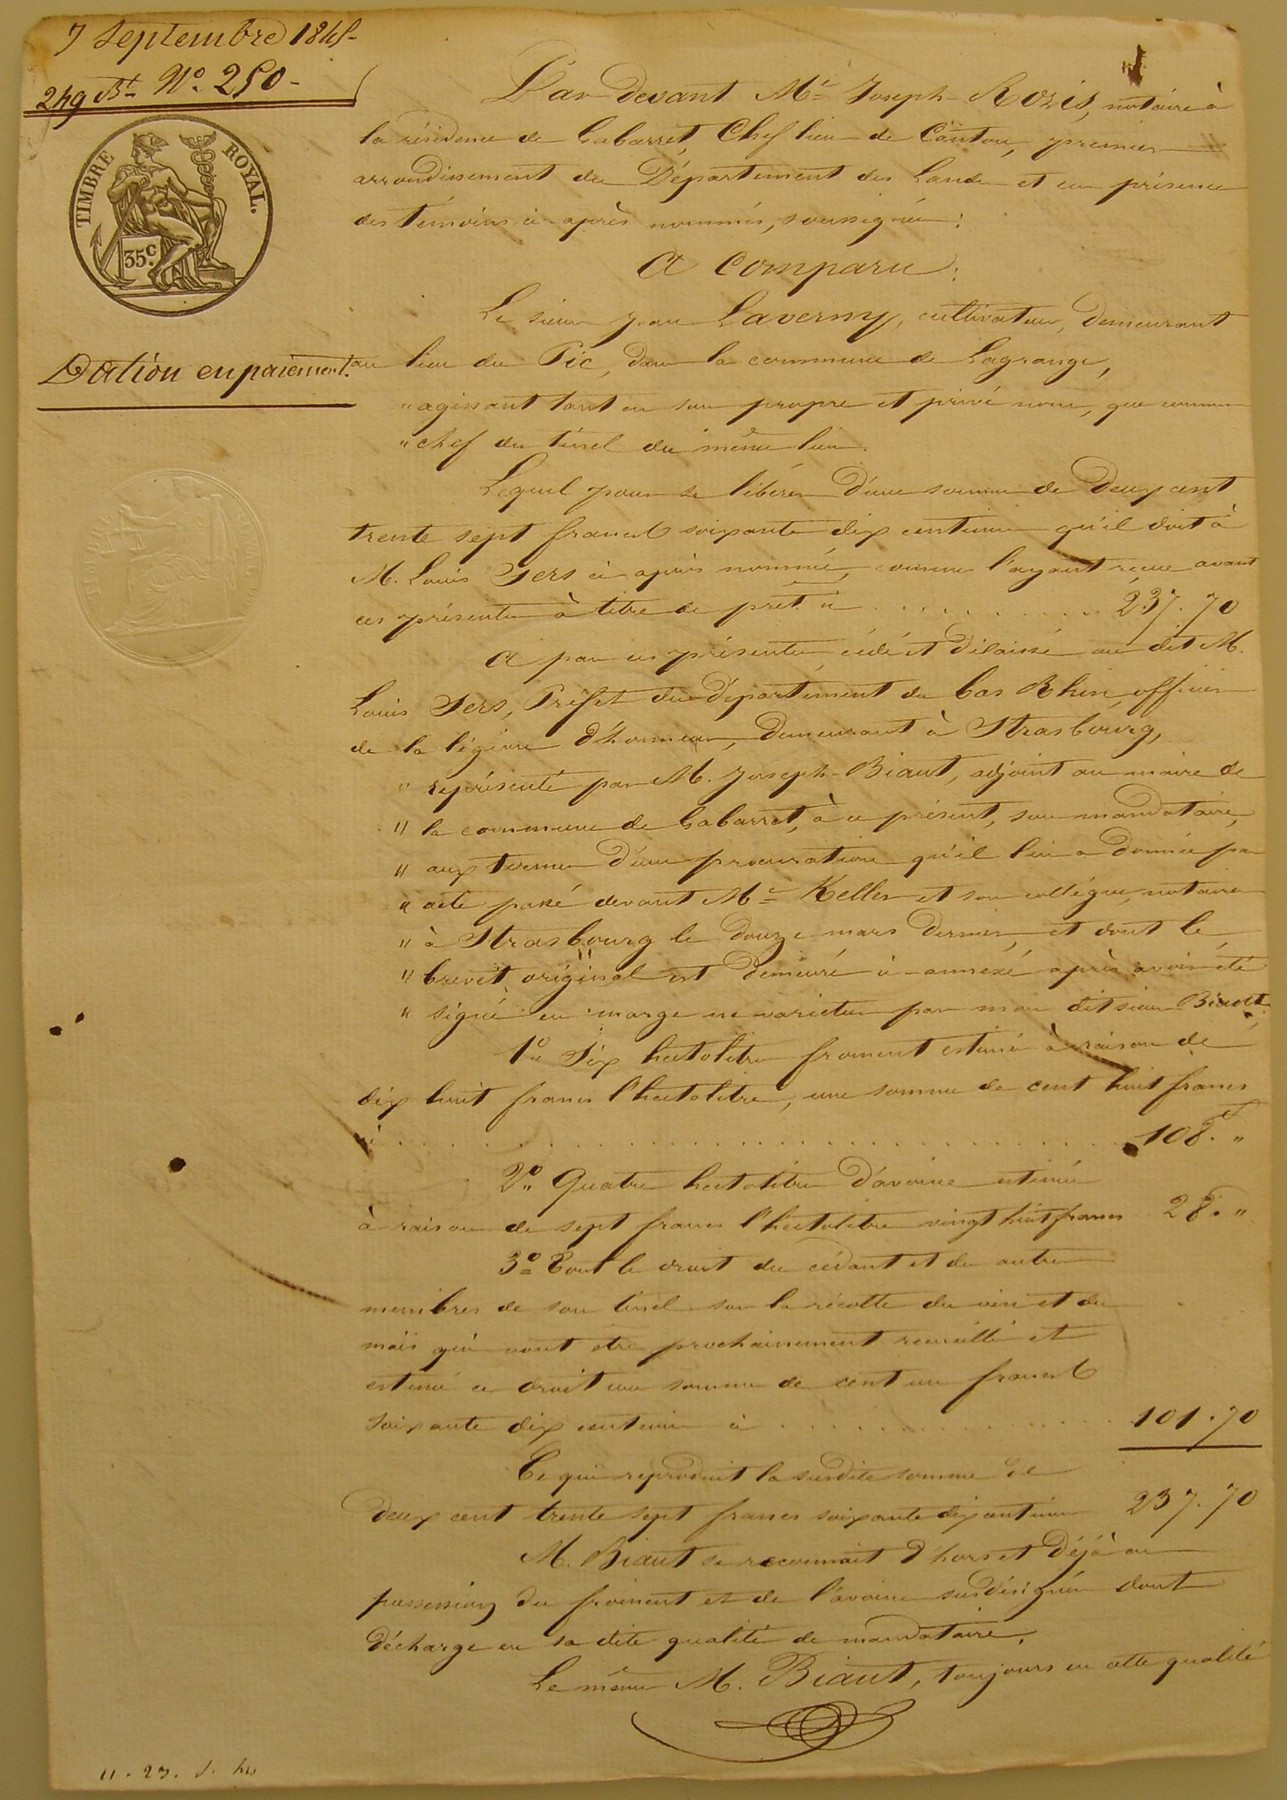 7 Septembre 1845
249 Bt. No. 250.
Par devant Me. Joseph Rozis, notaire à
la résidence de Gabarret, Chef lieu de Canton, premier
arrondissement du Département des Landes et en présence
des témoins ci-après nommés, soussignés:
A Comparu:
TIMBRE ROYAL.
35c.
Le sieur Jean Laverny, cultivateur, demeurant
Dation en paiement.
au lieu du Pic, dans la commune de Lagrange,
" agissant tant en son propre et privé nom, que comme
" chef du tinel du même lieu.
Lequel pour se libérer d'une somme de deux cent
trente sept francs soixante dix centimes qu'il doit à
M. Louis Sers ci après nommé, comme l'ayant reçue avant
ces présentes à titre de prêt ci . . . . . . . . . . 237.70
A par ces présentes, cédé et délaissé au dit M.
Louis Sers, Préfet du département du bas Rhin, officier
de la légion d'honneur, demeurant à Strasbourg,
" représenté par M. Joseph Biaut, adjoint au maire de
" la commune de Gabarret, à ce présent, son mandataire,
" aux termes d'une procuration qu'il lui a donnée par
" acte passé devant Me. Keller et son collègue, notaires
" à Strasbourg le douze mars dernier, et dont le
" brevet original est demeuré ci-annexé après avoir été
" signé en marge ne varietur par mon dit sieur Biaut.
1o. Six hectolitres froment estimés à raison de
dix huit francs l'hectolitre, une somme de cent huit francs
ci . . . . . . . . . . . . . . . . . . . . 108.f "
2o. Quatre hectolitres d'avoine estimés
à raison de sept francs l'hectolitre vingt huit francs 28. "
3o. Tout le droit du cédant et des autres
membres de son tinel sur la récolte du vin et du
maïs qui vont être prochainement recueillis et
estimé ce droit une somme de cent un francs
soixante dix centimes ci . . . . . . . . . . 101.70
Ce qui reproduit la susdite somme de
deux cent trente sept francs soixante dix centimes 237.70
M. Biaut se reconnait d'hors et déjà en
possession du froment et de l'avoine susdésignés dont
décharge en sa dite qualité de mandataire.
Le même M. Biaut, toujours en cette qualité